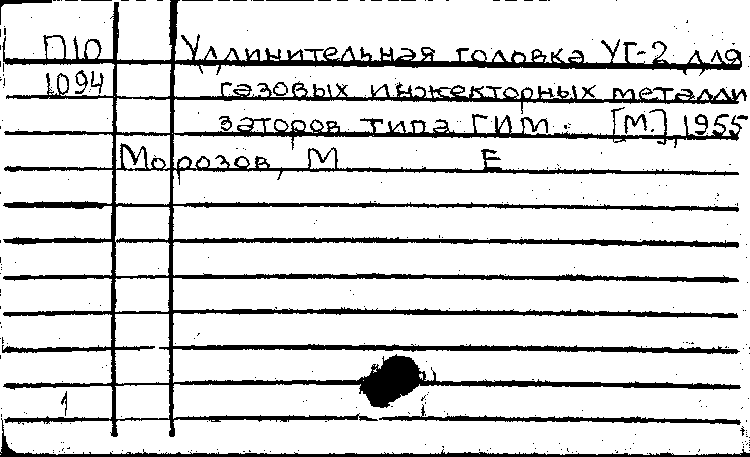 П10 Удлинительная головка УГ-2 для
1094 газовых инжекторных металли
заторов типа ГИМ. [М.], 1955
Морозов, М Е
1